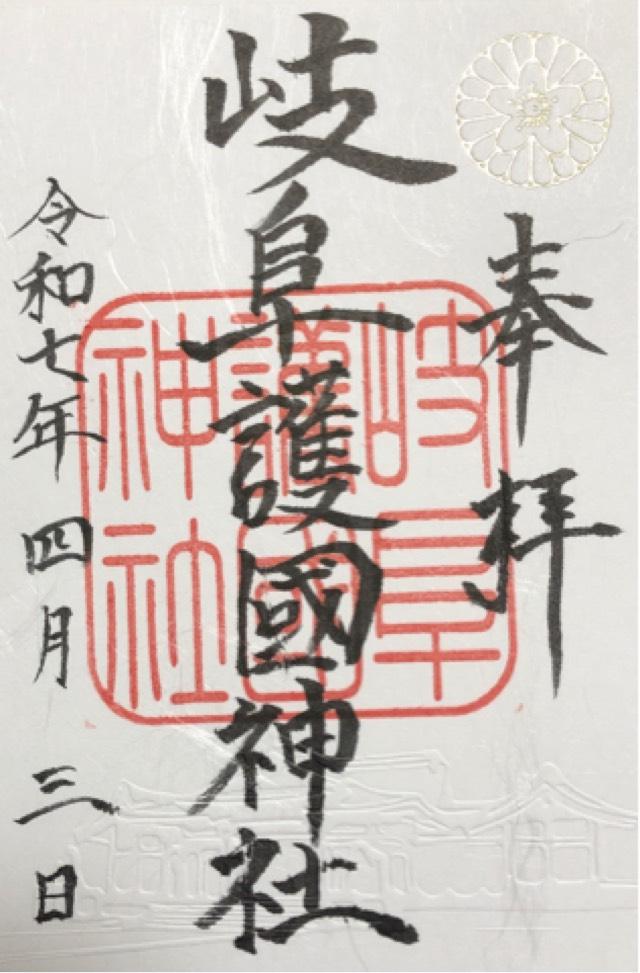 奉拝
岐阜護國神社
岐阜
護國
神社
令和七年四月三日